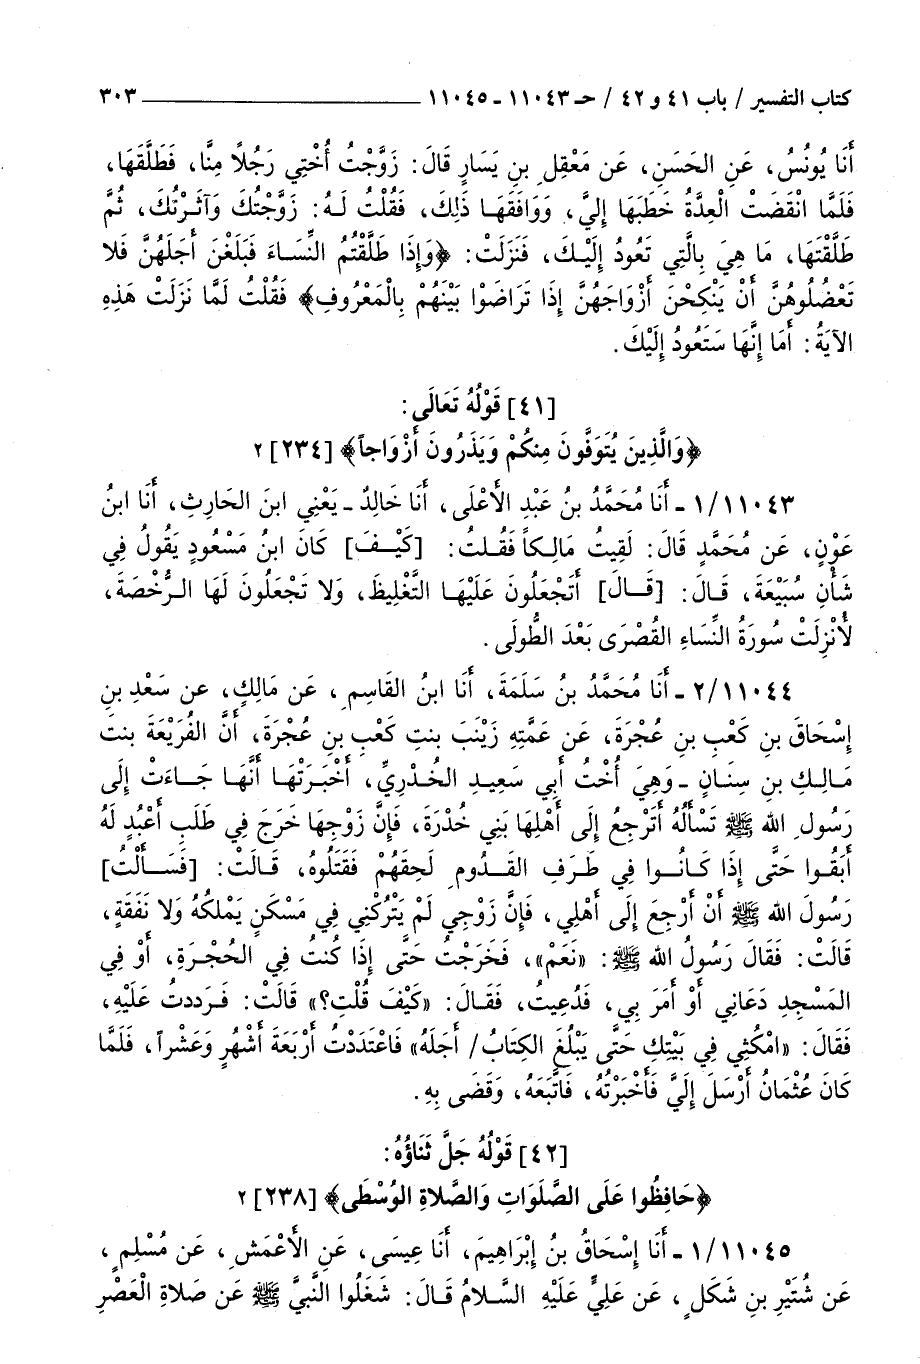 كتاب التفسير / باب ٤١ و ٤٢ / حـ ١١٠٤٣ ـ ١١٠٤٥ ٣٠٣
أَنَا يُونُسُ، عَنِ الحَسَنِ، عَن مَعْقِلِ بنِ يَسَارٍ قَالَ: زَوَّجْتُ أُخْتِي رَجُلاً مِنَّا، فَطَلَّقَهَا،
فَلَمَّا انْقَضَتْ العِدَّةُ خَطَبَهَا إِليَّ، وَوَافَقَهَا ذَلِكَ، فَقُلْتُ لَهُ: زَوَّجْتُكَ وَآثَرْتُكَ، ثُمَّ
طَلَّقْتَهَا، مَا هِيَ بِالَّتِي تَعُودُ إِلَيْكَ، فَنَزَلَتْ: ﴿وَإِذَا طَلَّقْتُمُ النِّسَاءَ فَبَلَغْنَ أَجَلَهُنَّ فَلا
تَعْضُلُوهُنَّ أَنْ يَنْكِحْنَ أَزْوَاجَهُنَّ إِذَا تَرَاضَوْا بَيْنَهُمْ بِالْمَعْرُوفِ﴾ فَقُلْتُ لَمَّا نَزَلَتْ هَذِهِ
الآيَةُ: أَمَا إِنَّهَا سَتَعُودُ إِلَيْكَ.
[٤١] قَوْلُهُ تَعَالَى:
﴿وَالَّذِينَ يُتَوَفَّونَ مِنكُمْ وَيَذَرُونَ أَزْوَاجاً﴾ [٢٣٤] ٢
١١٠٤٣/١ ـ أَنَا مُحَمَّدُ بنُ عَبْدِ الأَعْلَى، أَنَا خَالِدٌ ـ يَعْنِي ابنَ الحَارِثِ، أَنَا ابنُ
عَوْنٍ، عَن مُحَمَّدٍ قَالَ: لَقِيتُ مَالِكاً فَقُلتُ: [كَيْفَ] كَانَ ابنُ مَسْعُودٍ يَقُولُ فِي
شَأْنِ سُبَيْعَةَ، قَالَ: [قَالَ] أَتَجْعَلُونَ عَلَيْهَا التَّغْلِيظَ، وَلا تَجْعَلُونَ لَهَا الرُّخْصَةَ،
لأُنْزِلَتْ سُورَةُ النِّسَاءِ القُصْرَى بَعْدَ الطُّولَى.
١١٠٤٤/٢ ـ أَنَا مُحَمَّدُ بنُ سَلَمَةَ، أَنَا ابنُ القَاسِمِ، عَن مَالِكٍ، عَن سَعْدِ بنِ
إِسْحَاقَ بنِ كَعْبِ بنِ عُجْرَةَ، عَن عَمَّتِهِ زَيْنَبَ بنتِ كَعْبِ بنِ عُجْرَةَ، أَنَّ الفُرَيْعَةَ بنت
مَالِكِ بنِ سِنَانٍ ـ وَهِيَ أُخْتُ أَبِي سَعِيدٍ الخُدْرِيِّ، أَخْبَرَتْهَا أَنَّهَا جَاءَتْ إِلَى
رَسُولِ الله ﷺ تَسْأَلُهُ أَتَرْجِعُ إِلَى أَهْلِهَا بَنِي خُدْرَةَ، فَإِنَّ زَوْجَهَا خَرَجَ فِي طَلَبِ أَعْبُدٍ لَهُ
أَبَقُوا حَتَّى إِذَا كَانُوا فِي طَرَفِ القَدُومِ لَحِقَهُمْ فَقَتَلُوهُ، قَالَتْ: [فَسَأَلْتُ]
رَسُولَ الله ﷺ أَنْ أَرْجِعَ إِلَى أَهْلِي، فَإِنَّ زَوْجِي لَمْ يَتْرُكْنِي فِي مَسْكَنٍ يَمْلكهُ وَلا نَفَقَةٍ،
قَالَتْ: فَقَالَ رَسُولُ الله ﷺ: «نَعَمْ»، فَخَرَجْتُ حَتَّى إِذَا كُنتُ فِي الحُجْرَةِ، أَوْ فِي
المَسْجِدِ دَعَانِي أَوْ أَمَرَ بِي، فَدُعِيتُ، فَقَالَ: «كَيْفَ قُلْتِ؟» قَالَتْ: فَرَددتُ عَلَيْهِ،
فَقَالَ: «امْكُثِي فِي بَيْتِكِ حَتَّى يَبْلُغَ الكِتَابُ/ أَجَلَهُ» فَاعْتَدَدْتُ أَرْبَعَةَ أَشْهُرٍ وَعَشْراً، فَلَمَّا
كَانَ عُثْمَانُ أَرْسَلَ إِلَيَّ فَأَخْبَرْتُهُ، فَاتَّبَعَهُ، وَقَضَى بِهِ.
[٤٢] قَوْلُهُ جَلَّ ثَنَاؤُهُ:
﴿حَافِظُوا عَلَى الصَّلَوَاتِ وَالصَّلاةِ الوُسْطَى﴾ [٢٣٨] ٢
١١٠٤٥/١ ـ أَنَا إِسْحَاقُ بنُ إِبْرَاهِيمَ، أَنَا عِيسَى، عَنِ الأَعْمَشِ، عَن مُسْلِمٍ،
عَن شُتَيْرِ بنِ شَكَلٍ، عَن عَلِيٍّ عَلَيْهِ السَّلامُ قَالَ: شَغَلُوا النَّبيَّ ﷺ عَن صَلاةِ الْعَصْرِ